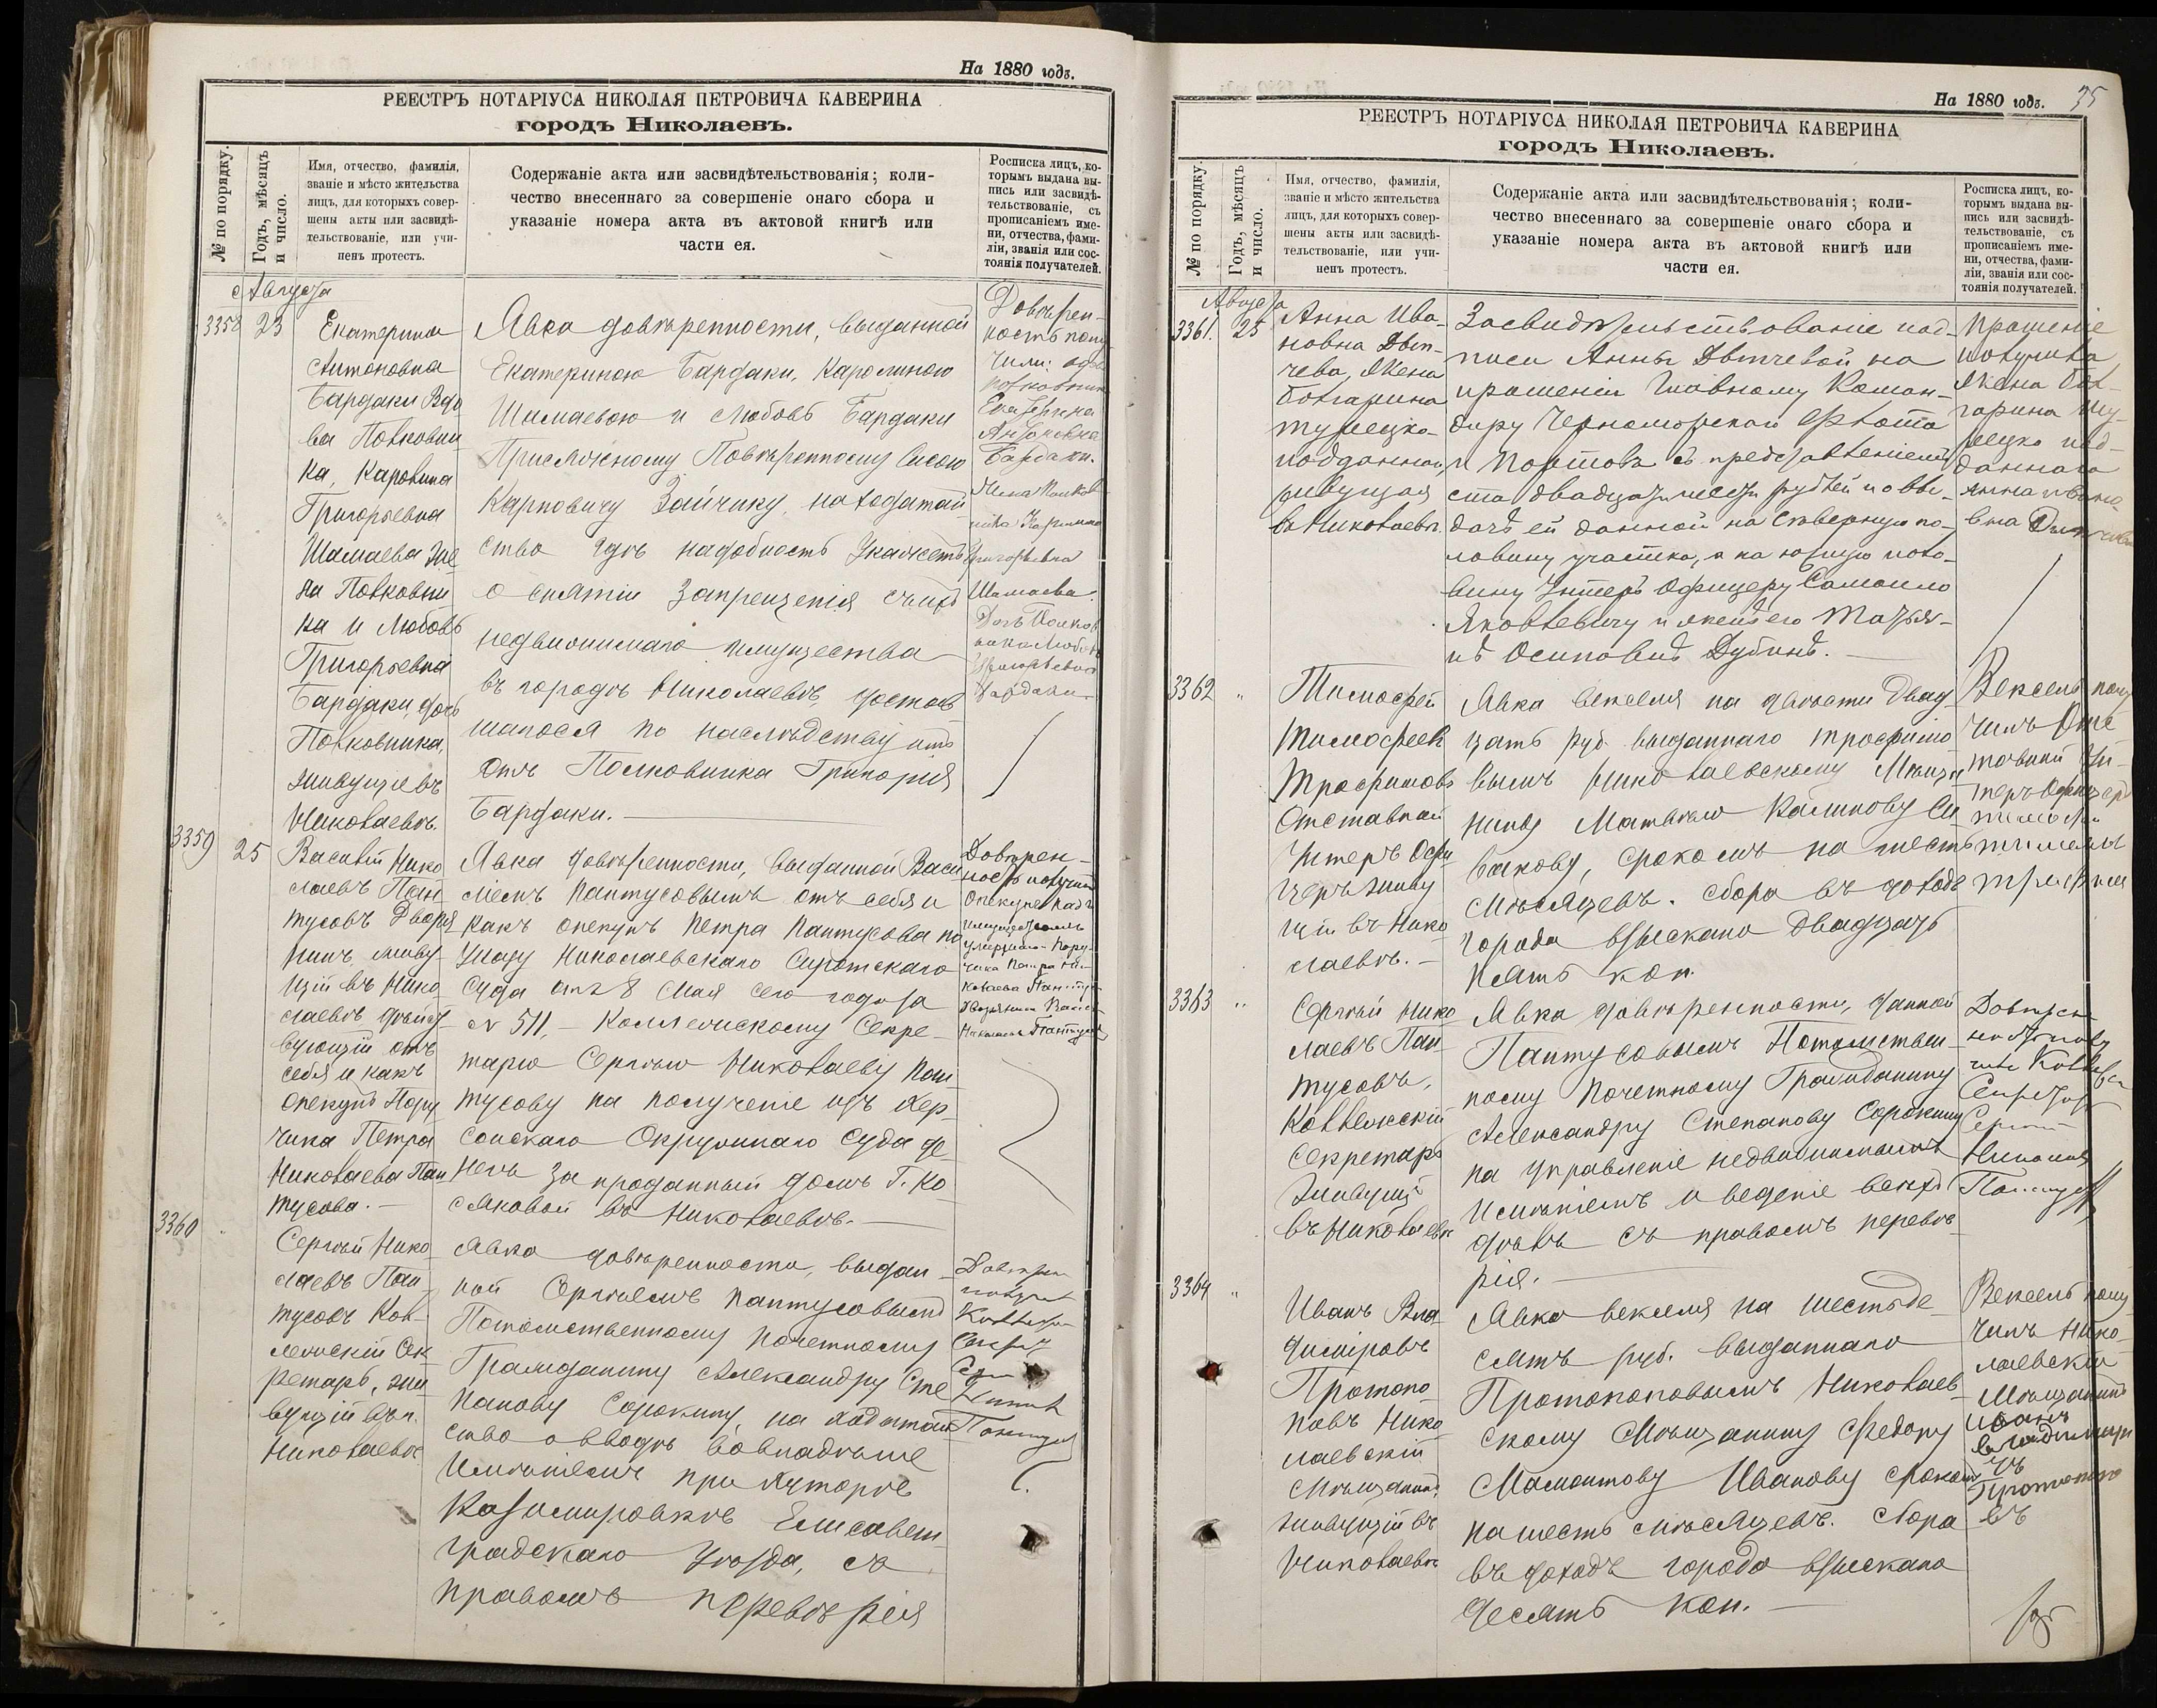 На 1880 годъ.
РЕЕСТРЪ НОТАРІУСА НИКОЛАЯ ПЕТРОВИЧА КАВЕРИНА
городъ Николаевъ.
№ по порядку.
Годъ, мѣсяцъ и число.
Имя, отчество, фамилія,
званіе и мѣсто жительства
лицъ, для которыхъ совер-
шены акты или засвидѣ-
тельствованіе, или учи-
ненъ протестъ.
Содержаніе акта или засвидѣтельствованія; коли-
чество внесеннаго за совершеніе онаго сбора и
указаніе номера акта въ актовой книгѣ или
части ея.
Росписка лицъ, ко-
торымъ выдана вы-
пись или засвидѣ-
тельствованіе, съ
прописаніемъ име-
ни, отчества, фами-
ліи, званія или сос-
тоянія получателей.
Августа
3358 23
Екатерина
Антоновна
Бардаки Вдо
ва Полковни
ка, Каролина
Григорьевна
Шамаева же
на Полковни
ка и Любовь
Григорьевна
Бардаки, дочь
Полковника,
живущіе въ
Николаевѣ.
Явка довѣренности, выданной
Екатериною Бардаки, Каролиною
Шамаевою и Любовь Бардаки
Присяжному Повѣренному
Карповичу Зайчику, на ходатай
ство гдѣ надобность укажетъ
о снятіи запрещенія съ ихъ
недвижимаго имущества
въ городѣ Николаевѣ, достав
шагося по наслѣдству отъ
Полковника Григорія
Бардаки.
Довѣрен-
ность полу
чили: вдова
полковника
Екатерина
Антоновна
Бардаки.
Жена Полков
ника Каролина
Григорьевна
Шамаева.
Дочь Полков
ника Любовь
Григорьевна
Бардаки
3359 25
Василій Нико
лаевъ Пан
тусовъ Дворя
нинъ, живу
щій въ Нико
лаевѣ дѣйст
вующій отъ
себя и какъ
опекунъ Пору
чика Петра
Николаева Пан
тусова.
Явка довѣренности, выданной Васи
ліемъ Пантусовымъ отъ себя и
какъ опекунъ Петра Пантусова по
указу Николаевскаго Сиротскаго
Суда отъ 8 Мая сего года за
№ 511, – Коллежскому Секре-
тарю Сергѣю Николаеву Пан
тусову на полученіе изъ Хер-
сонскаго Окружнаго Суда де
негъ за проданный домъ Г. Ко
сяковой въ Николаевѣ.
Довѣрен-
ность получилъ
Опекунъ надъ
имуществомъ
умершаго Пору-
чика Петра Ни-
колаева Пантус
Дворянинъ Васил
Николаевъ Пантусовъ
3360
Сергѣй Нико
лаевъ Пан
тусовъ Кол-
лежскій Сек
ретарь, жи
вущій въ г.
Николаевѣ
Явка довѣренности, выдан-
ной Сергѣемъ Пантусовымъ
Потомственному Почетному
Гражданину Александру Сте
панову Сорокину, на ходатай
ство о вводѣ во владѣніе
имѣніемъ при хуторѣ
Казимировкѣ Елисавет
градскаго Уѣзда, съ
правомъ перевѣрія
На 1880 годъ. 75
РЕЕСТРЪ НОТАРІУСА НИКОЛАЯ ПЕТРОВИЧА КАВЕРИНА
городъ Николаевъ.
№ по порядку.
Годъ, мѣсяцъ и число.
Имя, отчество, фамилія,
званіе и мѣсто жительства
лицъ, для которыхъ совер-
шены акты или засвидѣ-
тельствованіе, или учи-
ненъ протестъ.
Содержаніе акта или засвидѣтельствованія; коли-
чество внесеннаго за совершеніе онаго сбора и
указаніе номера акта въ актовой книгѣ или
части ея.
Росписка лицъ, ко-
торымъ выдана вы-
пись или засвидѣ-
тельствованіе, съ
прописаніемъ име-
ни, отчества, фами-
ліи, званія или сос-
тоянія получателей.
Августа
3361. 25
Анна Ива-
новна Дѣл-
чева, жена
болгарина
турецко-
подданнаго,
живущая
въ Николаевѣ.
Засвидѣтельствованіе под-
писи Анны Дѣлчевой на
прошеніи Главному Коман-
диру Черноморскаго Флота
и Портовъ съ представленіемъ
ста двадцати шести рублей и о вы-
дачѣ ей данной на сѣверную по-
ловину участка, а на южную поло-
вину Унтеръ Офицеру Самойло
Яковлевичу и женѣ его Марья-
нѣ Осиповнѣ Дубинъ.
Прошеніе
получила
жена бол-
гарина ту-
рецко под-
даннаго
Анна Ивано
вна
3362 "
Тимофей
Тимофеевъ
Трофимовъ
Отставной
Унтеръ Офи
церъ живу
щій въ Нико
лаевѣ.
Явка векселя на двѣсти двад
цать руб. выданнаго Трофимо
вымъ Николаевскому Мѣща
нину Матвѣю Калинову Си
бакову, срокомъ на шесть
мѣсяцевъ. Сбора въ доходъ
города взыскано двадцать
пять коп.
Вексель полу
чилъ Отс
тавной Ун-
теръ Офицеръ
Тимофей
3363 "
Сергѣй Нико
лаевъ Пан
тусовъ,
Коллежскій
Секретарь
живущій
въ Николаевѣ
Явка довѣренности, данной
Пантусовымъ Потомствен-
ному Почетному Гражданину
Александру Степанову Сорокину
на управленіе недвижимымъ
имѣніемъ и веденіе всѣхъ
дѣлъ съ правомъ перевѣ
рія.
3364 "
Иванъ Вла
диміровъ
Протопо
повъ Нико
лаевскій
Мѣщанинъ,
живущій въ
Николаевѣ
Явка векселя на шестьде
сятъ руб. выданнаго
Протопоповымъ Николаев
скому Мѣщанину Федору
Мамонтову Иванову срокомъ
на шесть мѣсяцевъ. Сбора
въ доходъ города взыскано
десять коп.
Вексель полу
чилъ Нико-
лаевскій
Мѣщанинъ
Иванъ
Владимиро
въ
Протопопо
въ